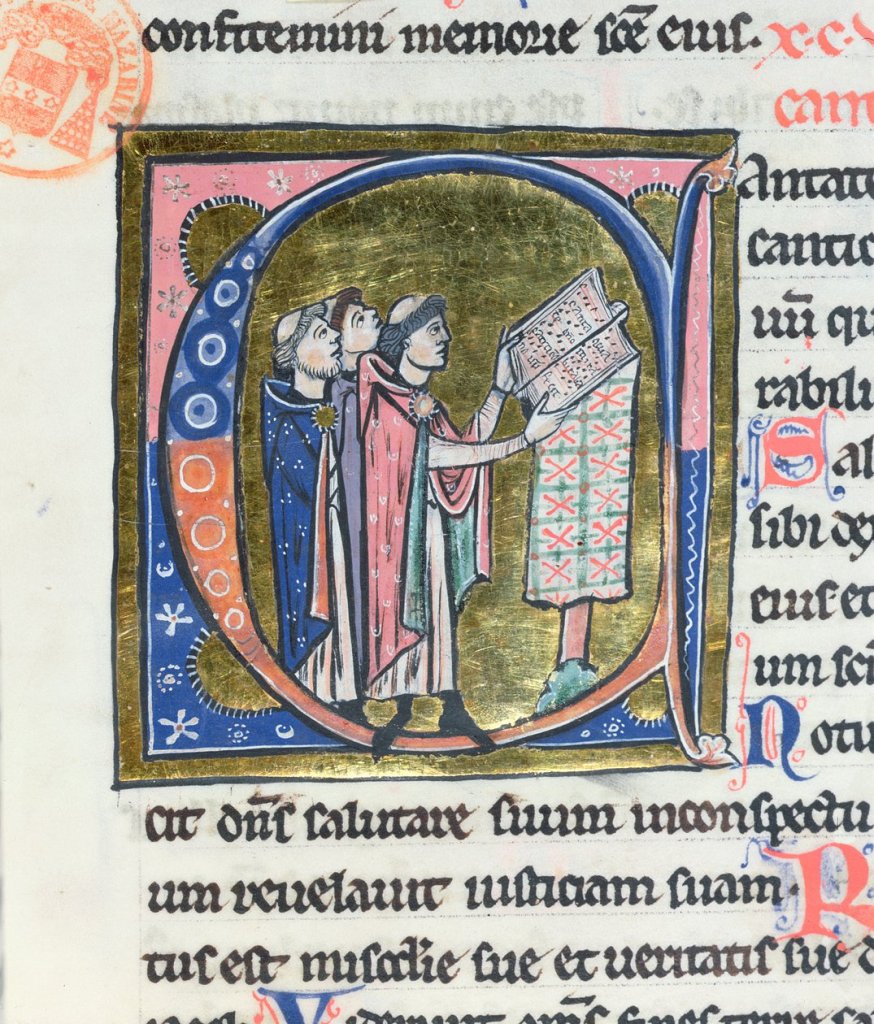 confitemini memorie sc̄e eius. x.c.v
cant
Antate
cantic
uū qu
rabili
Sal
sibi dex
eius et
um sc̄i
Notu
cit dn̄s salutare suum inconspectu
um reuelauit iusticiam suam.
R
tus est misc̄die sue et ueritatis sue d
Viderunt om̄s fines terre sa